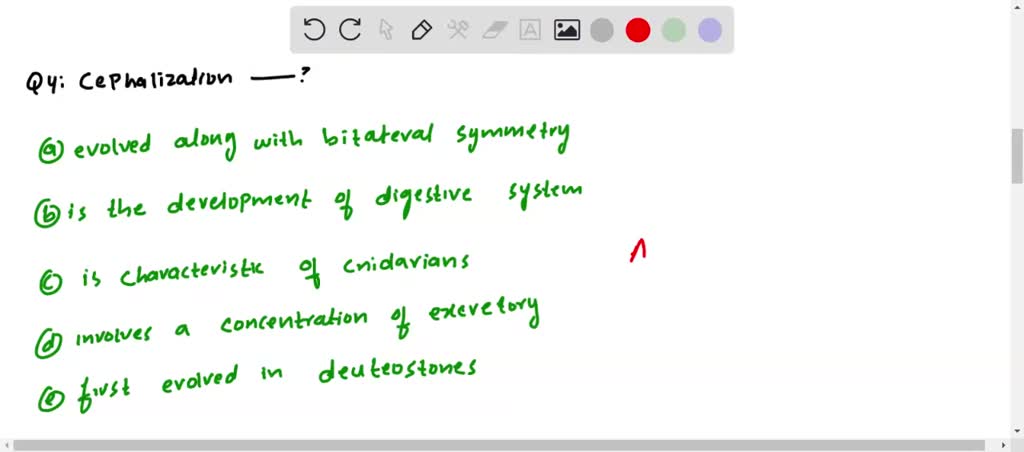 Q4: Cephalization —?
(a) evolved along with bitateral symmetry
(b) is the development of digestive system
(c) is characteristic of cnidarians
(d) involves a concentration of excretory
(e) first evolved in deuteostones